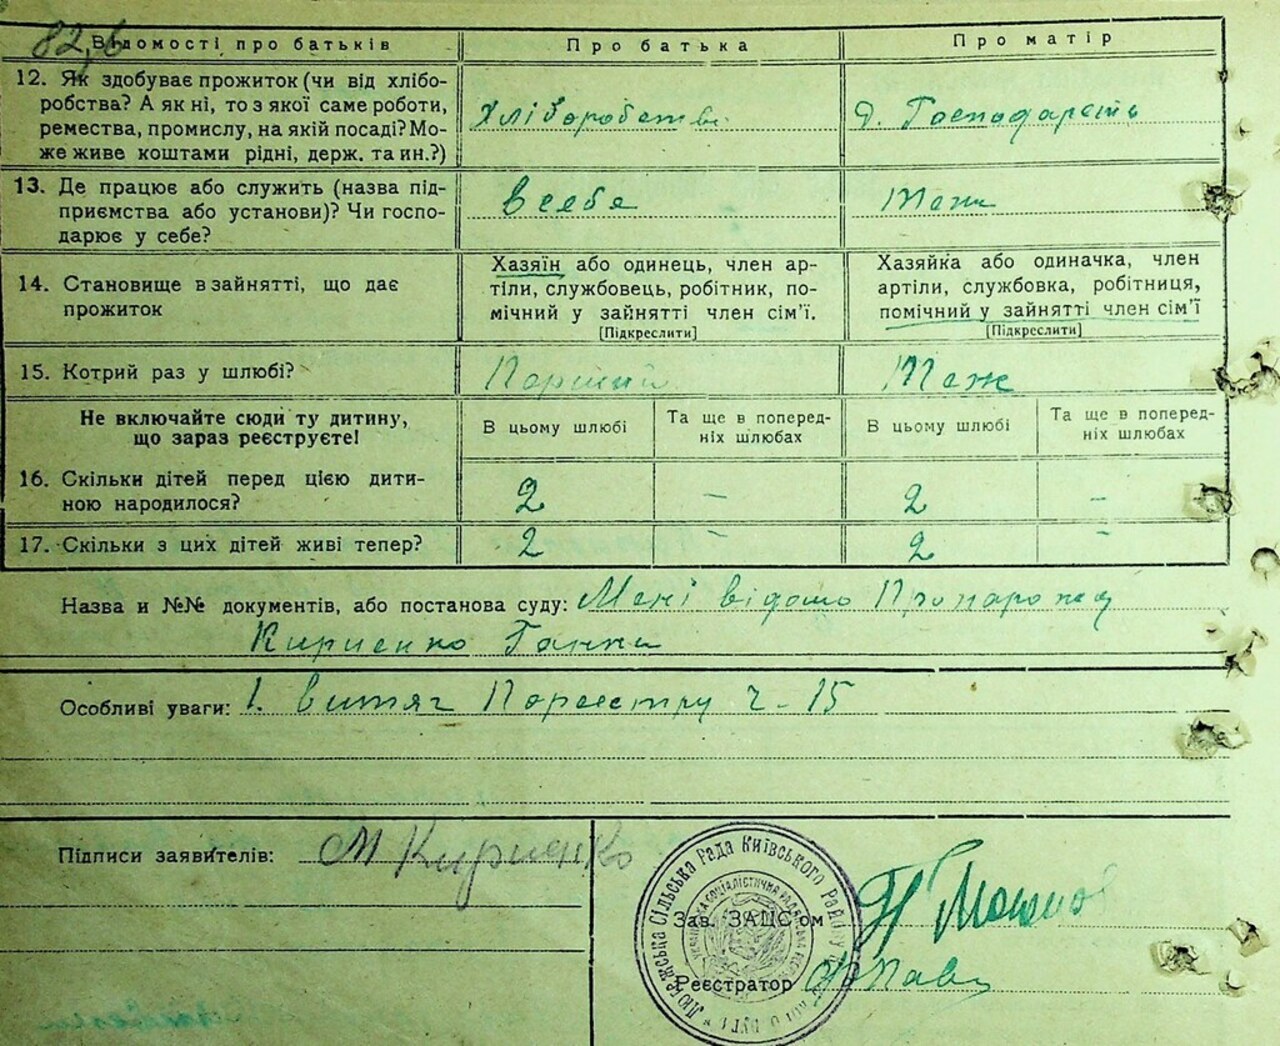 82,б
Відомості про батьків
Про батька
Про матір
12. Як здобуває прожиток (чи від хлібо-
робства? А як ні, то з якої саме роботи,
ремества, промислу, на якій посаді? Мо-
же живе коштами рідні, держ. та ин.?)
Хліборобством
д. Господарсть
13. Де працює або служить (назва під-
приємства або установи)? Чи госпо-
дарює у себе?
в себе
Теж
14. Становище в зайнятті, що дає
прожиток
Хазяїн або одинець, член ар-
тіли, службовець, робітник, по-
мічний у зайнятті член сім’ї.
[Підкреслити]
Хазяйка або одиначка, член
артіли, службовка, робітниця,
помічний у зайнятті член сім’ї
[Підкреслити]
15. Котрий раз у шлюбі?
Перший
Теж
Не включайте сюди ту дитину,
що зараз реєструєте!
В цьому шлюбі
Та ще в поперед-
ніх шлюбах
В цьому шлюбі
Та ще в поперед-
ніх шлюбах
16. Скільки дітей перед цією дити-
ною народилося?
2 – 2 –
17. Скільки з цих дітей живі тепер?
2 – 2 –
Назва и №№ документів, або постанова суду: Мені відомо Про народж
Кириенко Ганни
Особливі уваги: 1. Витяг По реєстру ч-15
Підписи заявителів: М Кириенко
Зав. ЗАЦС'ом
Реєстратор
Сільська Рада Київського Району